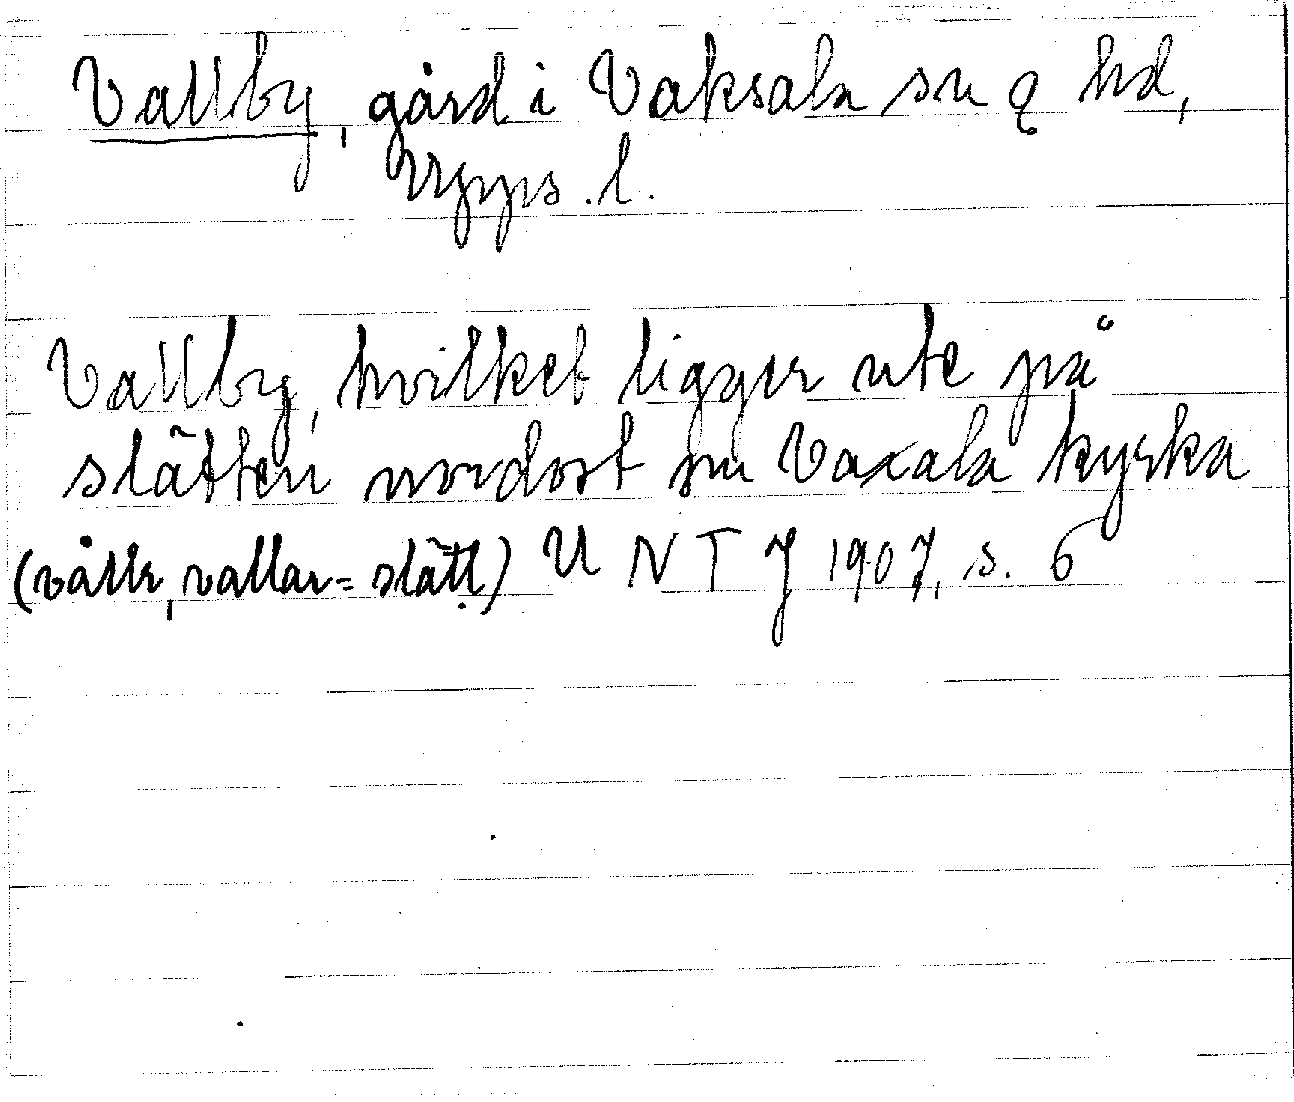 Vallby, gård i Vaksala sn o hd,
Upps. l.
Vallby, hvilket ligger ute på
slätten nordost om Vaxala kyrka
(vållr, vallar = slätt) UNTJ 1907, s. 6